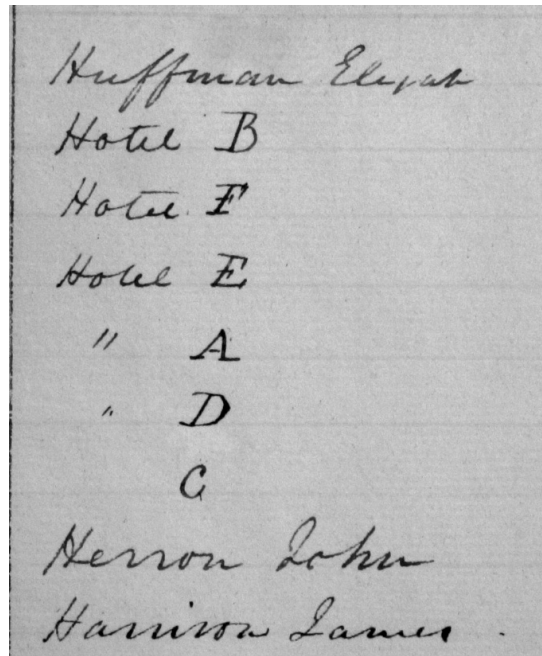 Huffman Elijah
Hotel B
Hotel F
Hotel E
" A
" D
C
Herron John
Harrison James